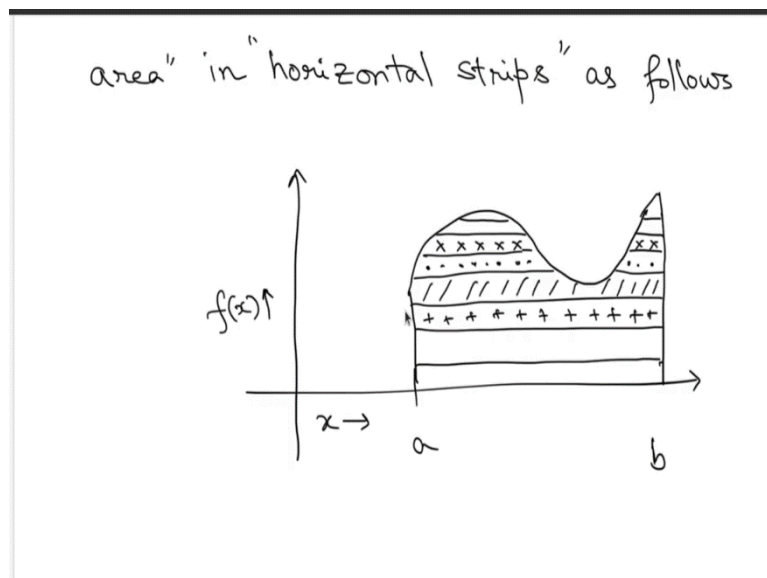 area" in "horizontal strips" as follows
f(x)↑
x→
a
b